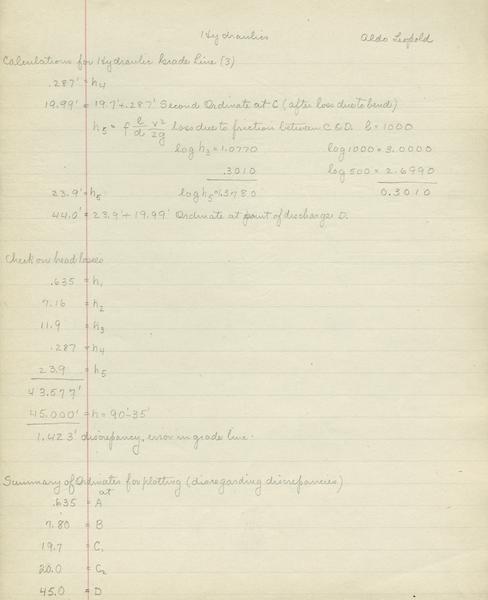 Hydraulics
Aldo Leopold
Calculations for Hydraulic Grade Line (3)
.287' = h4
19.99' = 19.7' + .287' Second Ordinate at C (after loss due to bend)
h5 = f l/d v²/2g loss due to friction between C & D. l = 1000
log h3 = 1.0770 log 1000 = 3.0000
.3010 log 500 = 2.6990
23.9' = h5 log h5 = 1.3780 0.3010
44.0' = 23.9' + 19.99' Ordinate at point of discharge D.
Check on head losses
.635 = h1
7.16 = h2
11.9 = h3
.287 = h4
23.9 = h5
43.577'
45.000' = h = 90'-35'
1.423' discrepancy, error in grade line.
Summary of Ordinates for plotting (disregarding discrepancies)
at
.635 = A
7.80 = B
19.7 = C1
20.0 = C2
45.0 = D